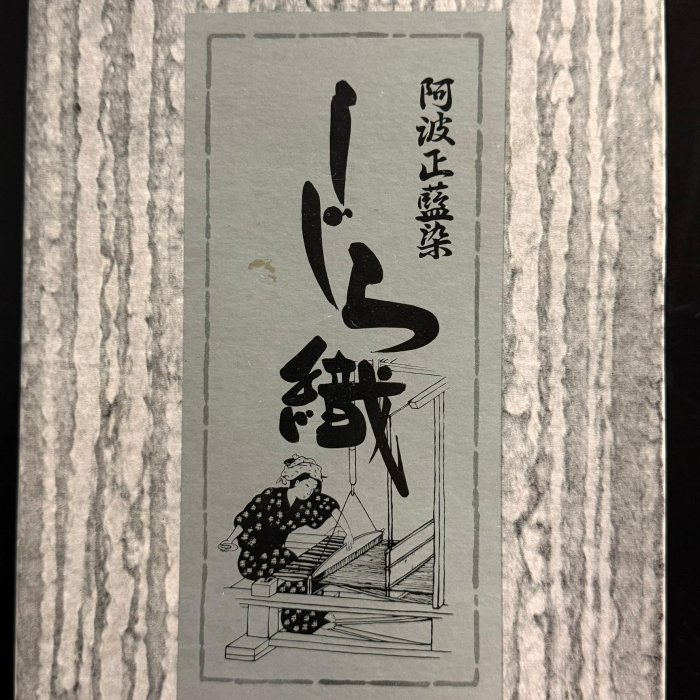 阿波正藍染
しじら織